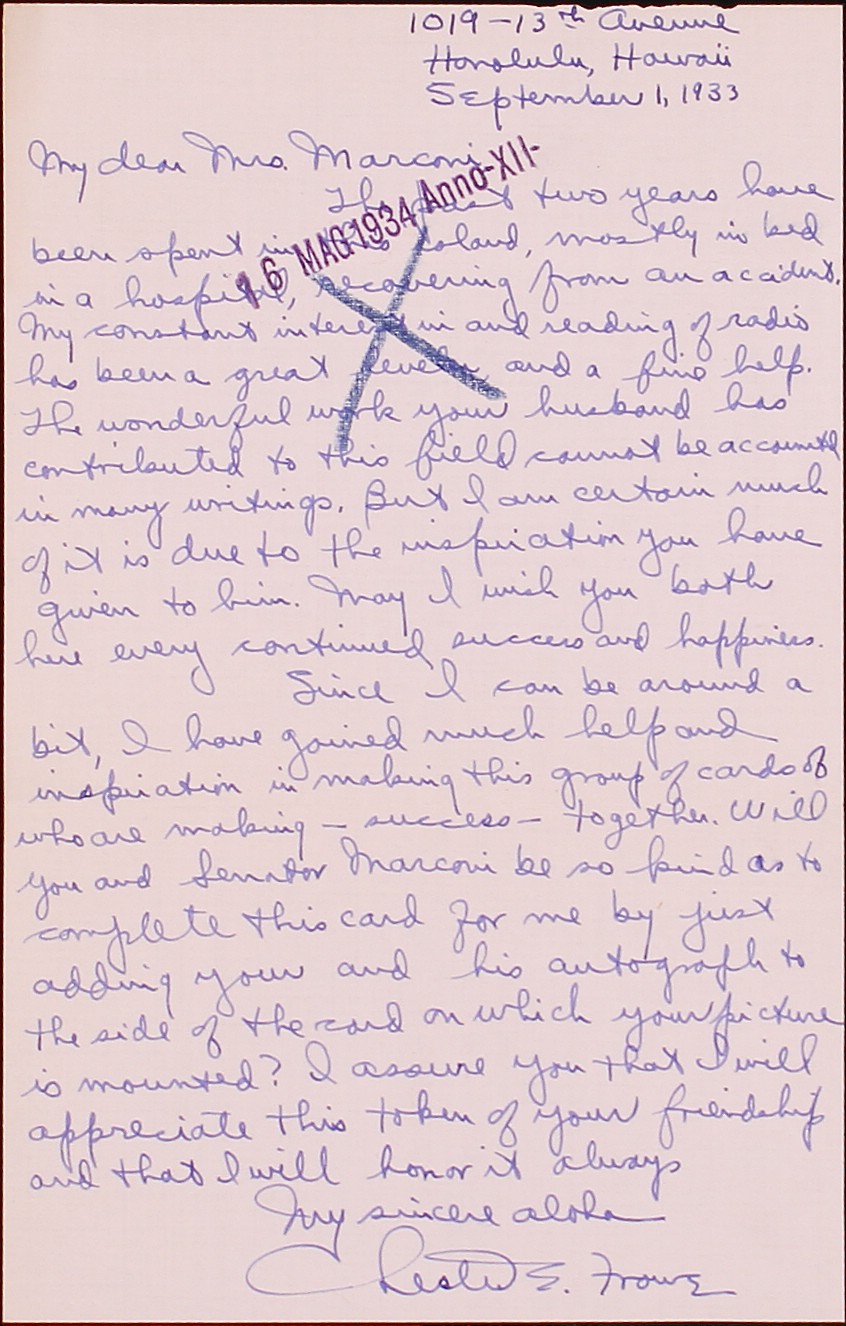 1019-13th Avenue
Honolulu, Hawaii
September 1, 1933
My dear Mrs. Marconi
16 MAG 1934 Anno-XII-
The past two years have
been spent in this island, mostly in bed
in a hospital, recovering from an accident.
My constant interest in and reading of radio
has been a great and a fine help.
The wonderful work your husband has
contributed to this field cannot be accounted
in many writings. But I am certain much
of it is due to the inspiration you have
given to him. May I wish you both
here every continued success and happiness.
Since I can be around a
bit, I have gained much help and
inspiration in making this group of cards of
who are making - success - together. Will
you and Senator Marconi be so kind as to
complete this card for me by just
adding your and his autograph to
the side of the card on which your picture
is mounted? I assure you that I will
appreciate this token of your friendship
and that I will honor it always
My sincere aloha
Chester E. Frowe